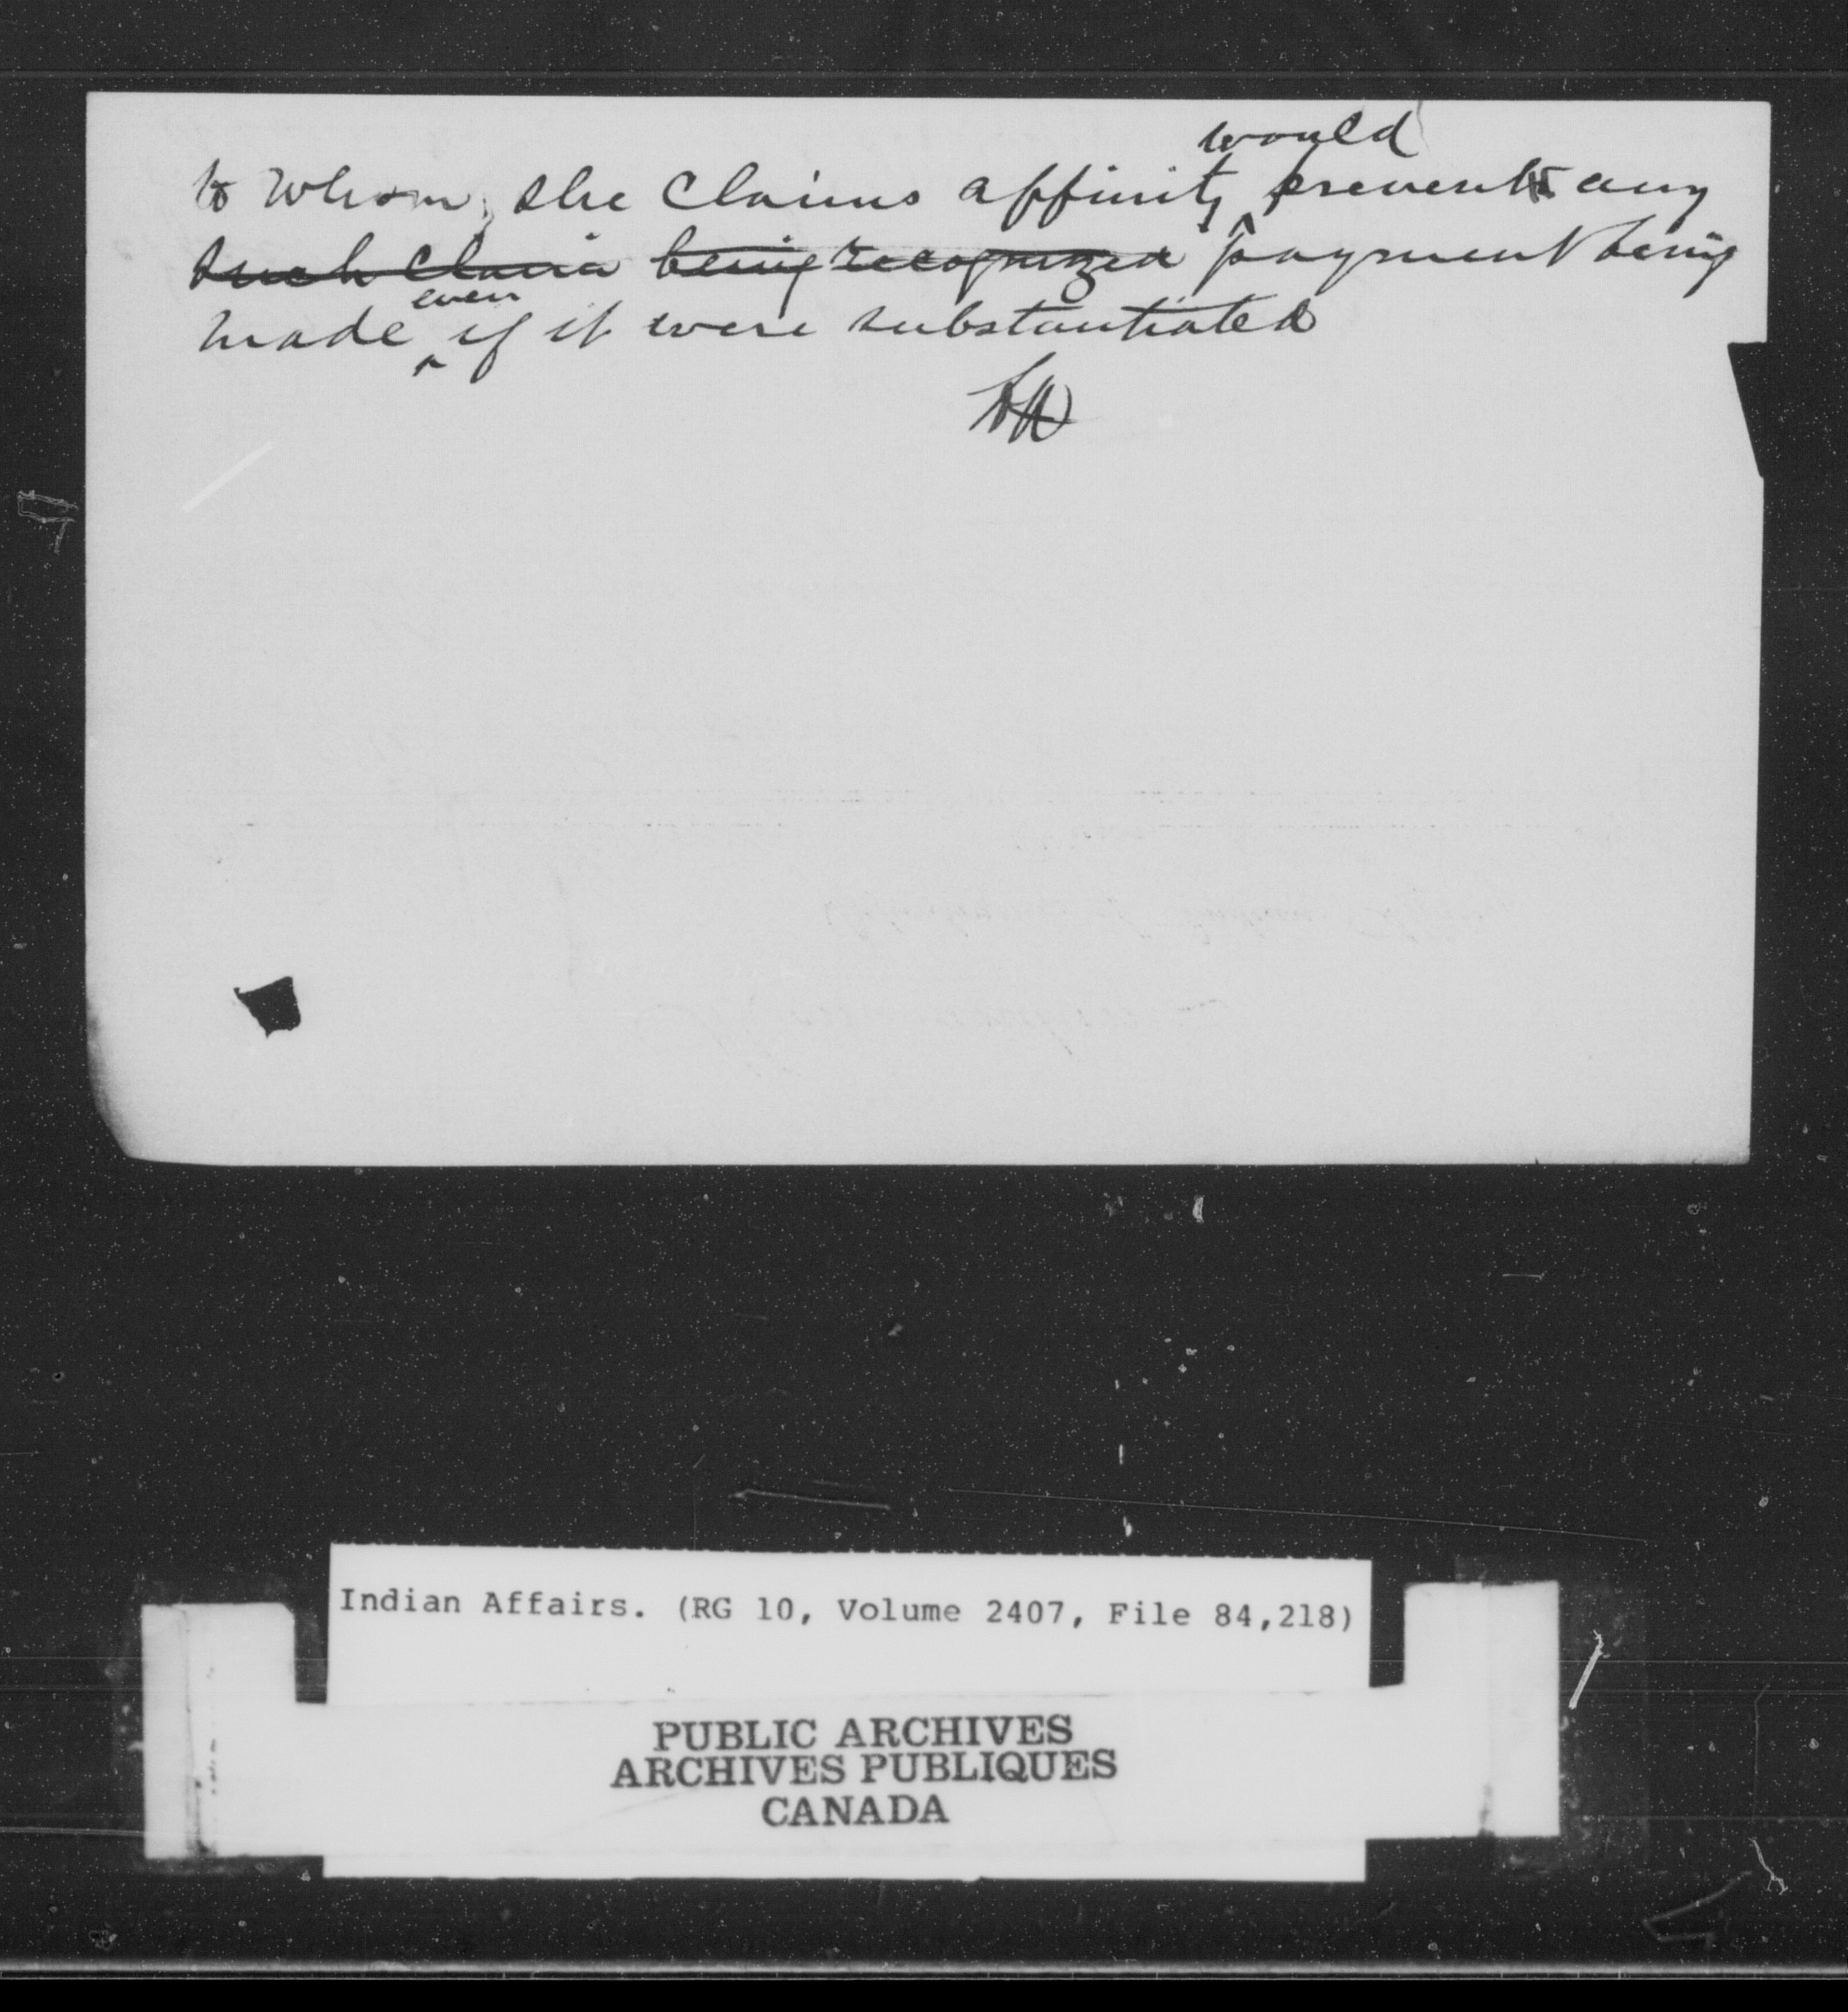 would
to whom, she claims affinity prevents any
such claim being recognized payment being
even
made if it were substantiated
Indian Affairs. (RG 10, Volume 2407, File 84,218)
PUBLIC ARCHIVES
ARCHIVES PUBLIQUES
CANADA